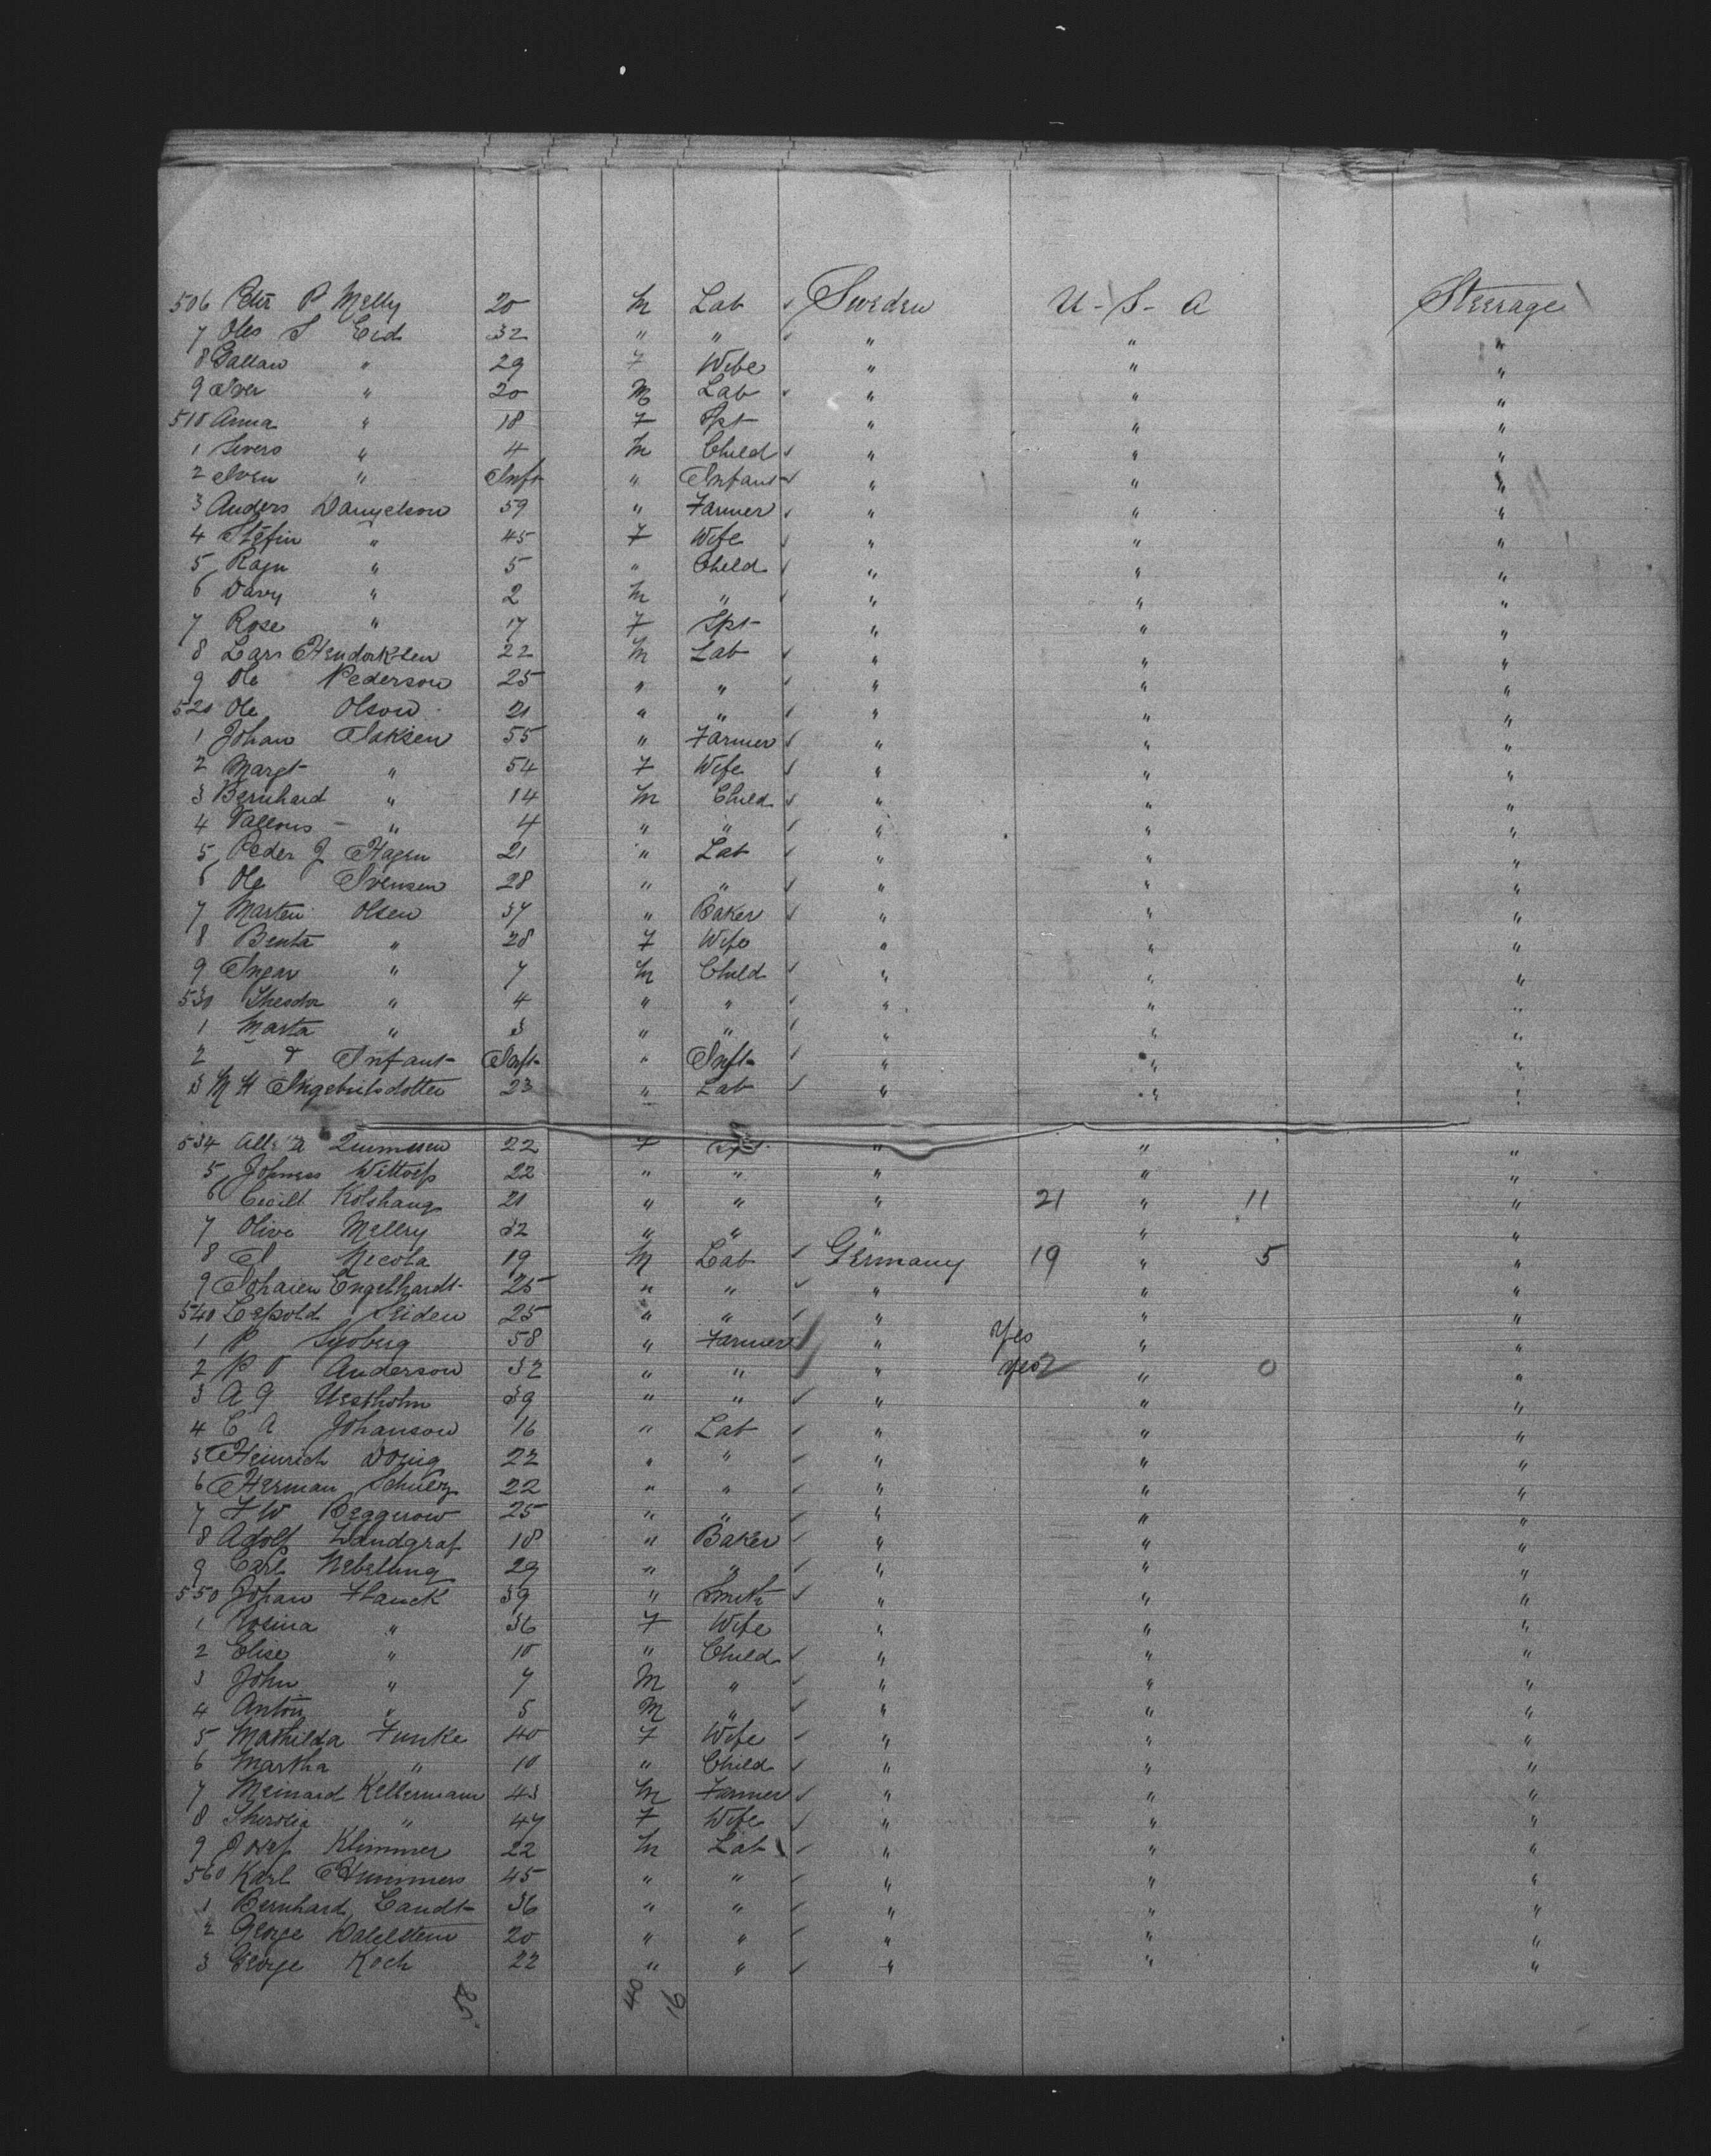 506 Petr P Melly 20 M Lab ✓ Sweden U-S-A Steerage
7 Oles S Eid 32 " " ✓ " " "
8 " 29 F Wife " " "
9 Iver " 20 M Lab ✓ " " "
510 Anna " 18 F Spt " " "
1 Sivers " 4 M Child ✓ " " "
2 Sven " Inft " Infant ✓ " " "
3 Anders Danyelson 59 " Farmer ✓ " " "
4 Stefin " 45 F Wife ✓ " " "
5 Ragn " 5 " Child ✓ " " "
6 Davy " 2 M " ✓ " " "
7 Rose " 17 F Spt " " "
8 Lars Hendorksen 22 M Lab ✓ " " "
9 Ole Pederson 25 " " ✓ " " "
520 Ole Olson 21 " " ✓ " " "
1 Johan Isaksen 55 " Farmer ✓ " " "
2 Margt " 54 F Wife ✓ " " "
3 Bernhard " 14 M Child ✓ " " "
4 " 4 " " ✓ " " "
5 Peder J Hagen 21 " Lab ✓ " " "
6 Ole Svensen 28 " " ✓ " " "
7 Marten Olsen 37 " Baker ✓ " " "
8 Benta " 28 F Wife " " "
9 Ingar " 7 M Child ✓ " " "
530 Theodor " 4 " " ✓ " " "
1 Marta " 3 " " ✓ " " "
2 & Infant Inft " Inft ✓ " " "
3 M H Ingebritsdotter 23 " Lab ✓ " " "
534 22 F Spt " " "
5 Johness Wittorp 22 " " " " "
6 Kolshaug 21 " " " 21 " 11 "
7 Olive Mellry 32 " " " " "
8 Nicola 19 M Lab ✓ Germany 19 " 5 "
9 Johaien Engelhardt 25 " " ✓ " " "
540 Leopold Seiden 25 " " ✓ " " "
1 P Syoberg 58 " Farmer " Yes " "
2 P O Anderson 32 " " " Yes 2 " 0 "
3 A G Westholm 39 " " ✓ " " "
4 C A Johanson 16 " Lab ✓ " " "
5 Heinrich Donig 22 " " ✓ " " "
6 Herman Schulz 22 " " ✓ " " "
7 F W Beggerow 25 " " ✓ " " "
8 Adolf Landgraf 18 " Baker ✓ " " "
9 Carl Nebelung 29 " " ✓ " " "
550 Johan Hauck 39 " Smith ✓ " " "
1 Rosina " 36 F Wife " " "
2 Elise " 10 " Child ✓ " " "
3 John " 7 M " ✓ " " "
4 Anton " 5 M " ✓ " " "
5 Mathilda Funke 40 F Wife ✓ " " "
6 Martha " 10 " Child ✓ " " "
7 Meinard Kellermann 43 M Farmer ✓ " " "
8 " 47 F Wife ✓ " " "
9 Josef Klimmer 22 M Lab ✓ " " "
560 Karl Hummers 45 " " ✓ " " "
1 Bernhard Landt 36 " " ✓ " " "
2 George 20 " " ✓ " " "
3 George Koch 22 " " ✓ " " "
58 40 16